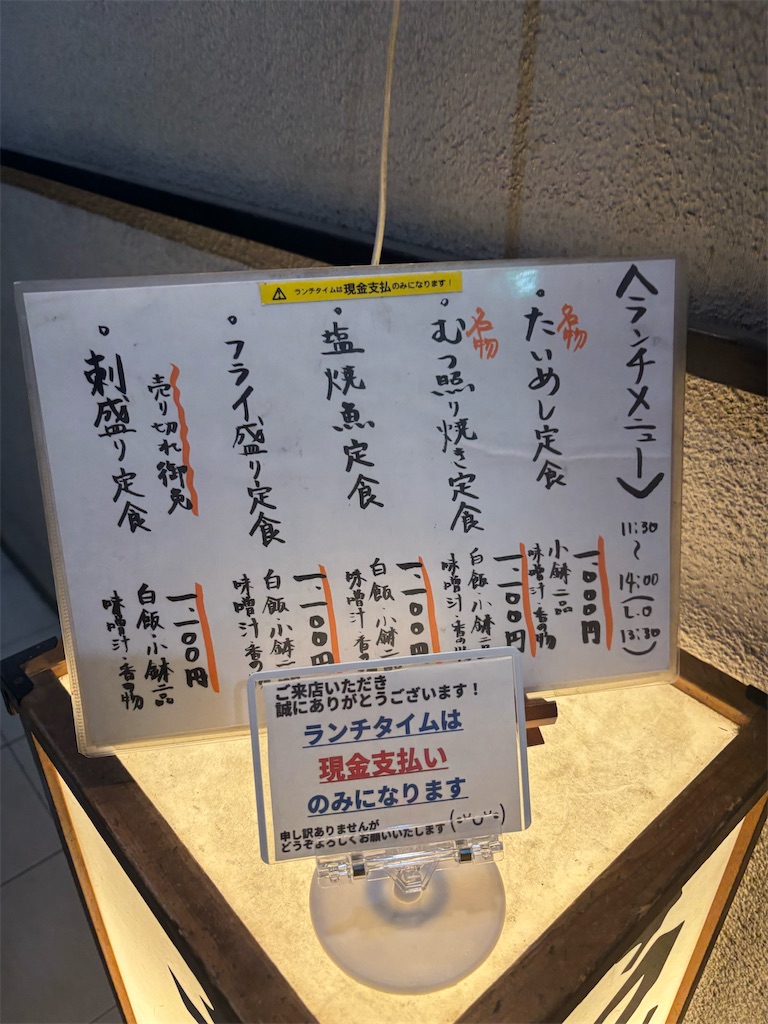 ⚠ ランチタイムは現金支払のみになります！
〈ランチメニュー〉
11:30
〜
14:00
(L.O
13:30)
名物
・たいめし定食
1.000円
小鉢二品
味噌汁・香の物
名物
・むつ照り焼き定食
一、一〇〇円
白飯・小鉢二品
味噌汁・香の物
・塩焼魚定食
一、一〇〇円
白飯・小鉢二
味噌汁・香の
・フライ盛り定食
一、一〇〇円
白飯・小鉢二
味噌汁・香の
・刺盛り定食
売り切れ御免
一、一〇〇円
白飯・小鉢二品
味噌汁・香の物
ご来店いただき
誠にありがとうございます！
ランチタイムは
現金支払い
のみになります
申し訳ありませんが
どうぞよろしくお願いいたします